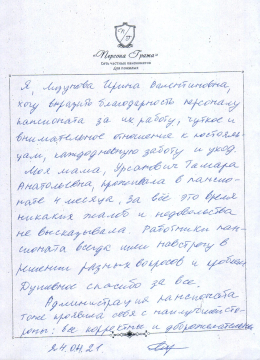 «Персона Гранд»
Сеть частных пансионатов
для пожилых
Я, Ирина Валентиновна,
хочу выразить благодарность персоналу
пансионата за их работу, чуткое и
внимательное отношение к постояль-
цам, каждодневную заботу и уход.
Моя мама, Тамара
Анатольевна, проживала в пансио-
нате 4 месяца. За все это время
никаких жалоб и недовольства
не высказывала. Работники пан-
сионата всегда шли навстречу в
решении разных вопросов и проблем.
Душевное спасибо за все.
Администрация пансионата
тоже проявила себя с наилучшей сто-
роны: все корректны и доброжелательны.
24.04.21